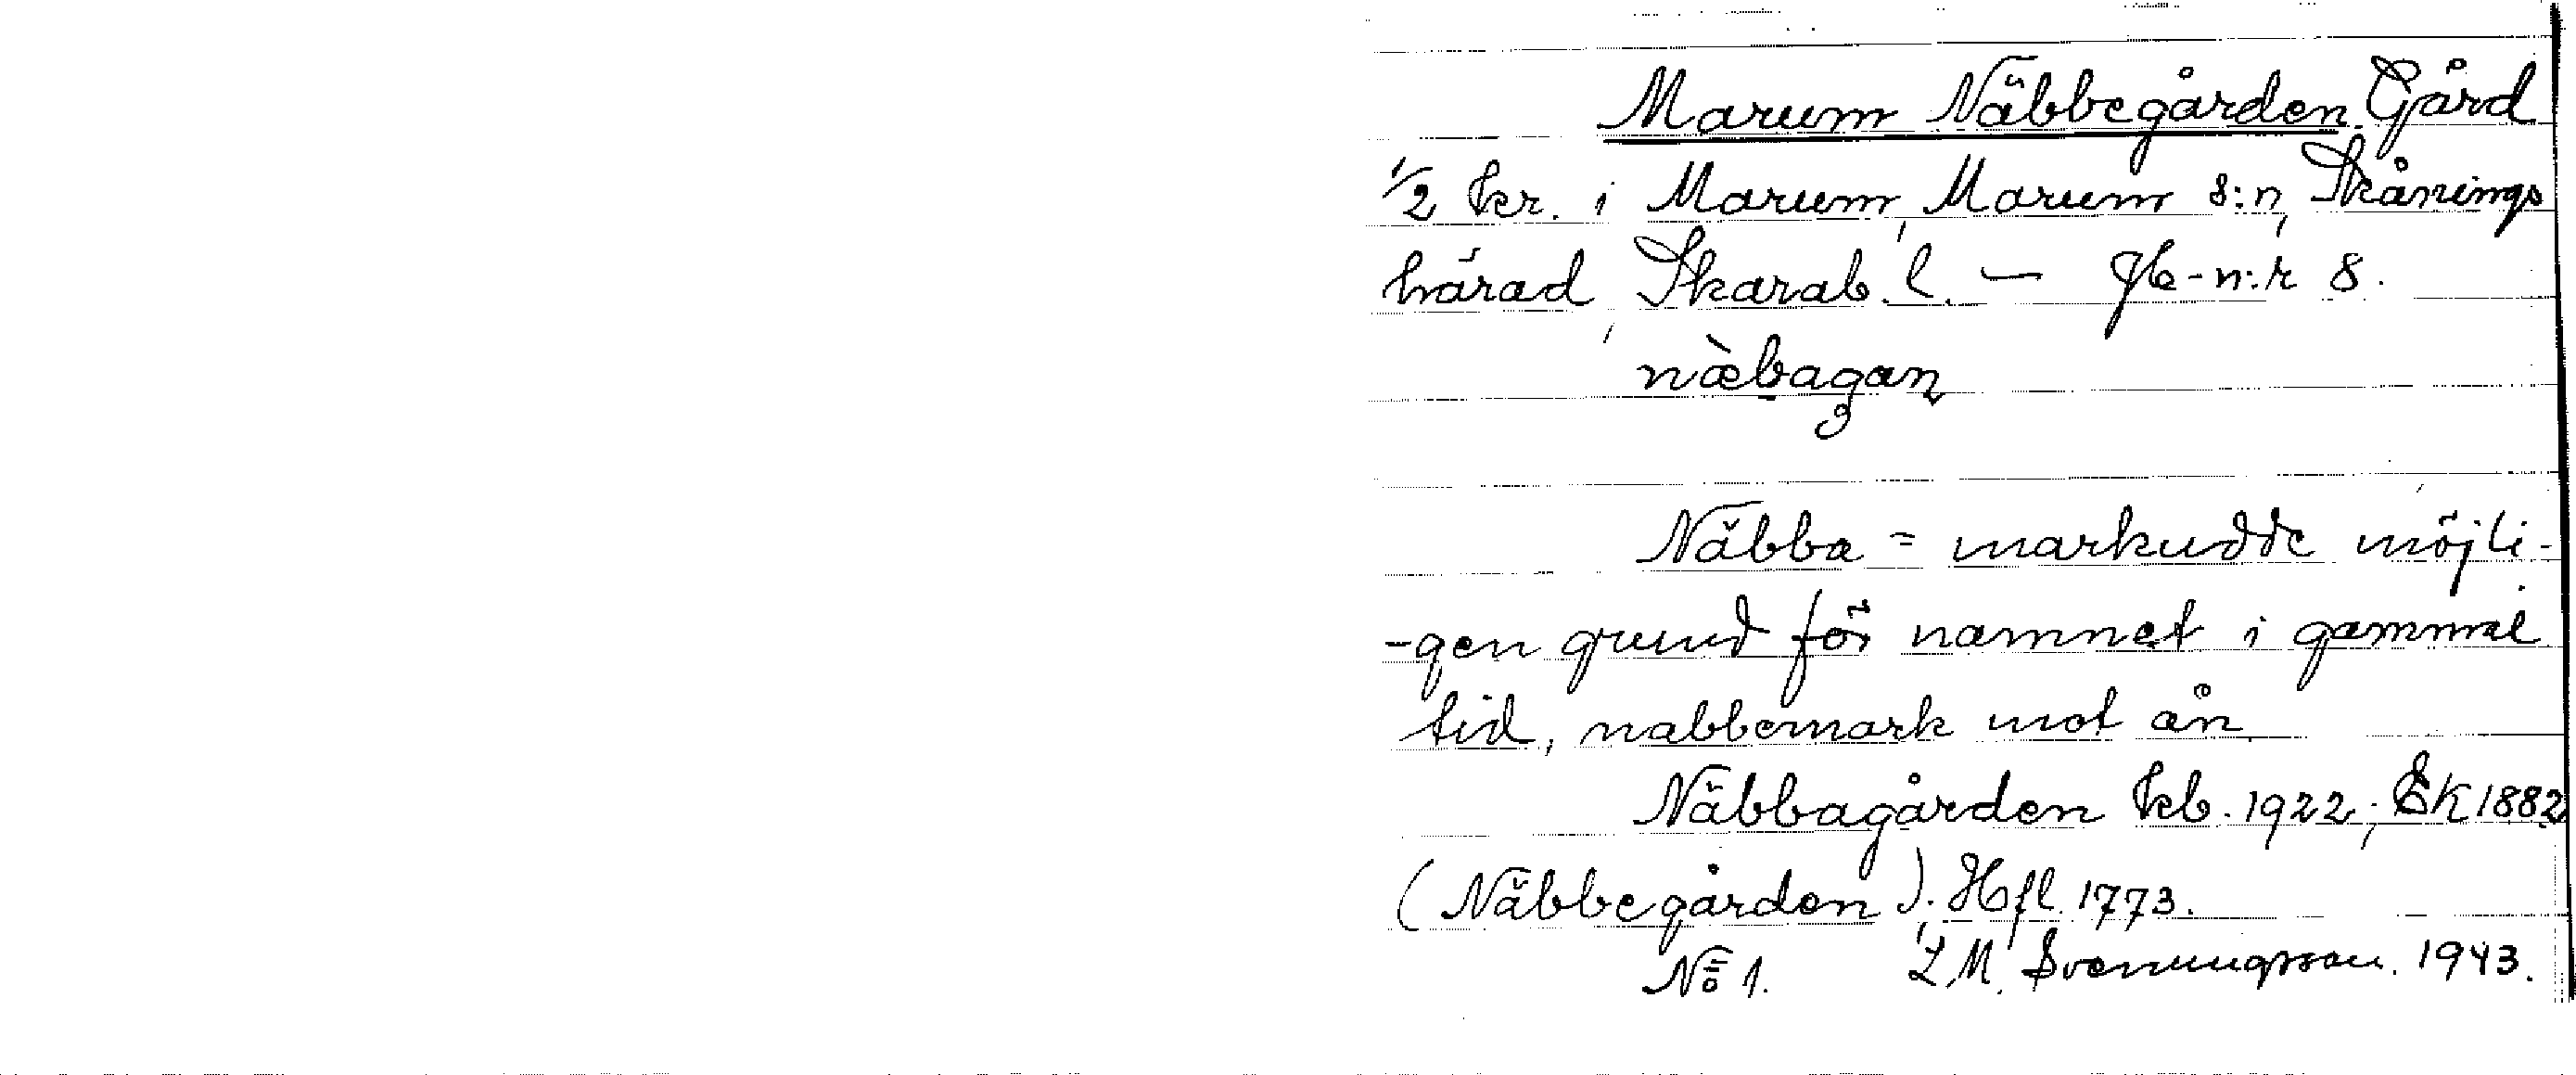 Marum Näbbegården Gård
1/2 kr. i Marum, Marum s:n, Skånings
härad, Skarab. l. — Jb-n:r 8.
næ̀bagaṇ
Näbba = markudde möjli-
-gen grund för namnet i gammal
tid, nabbemark mot ån
Näbbagården kb. 1922; EK 1882
(Näbbegården). Hfl. 1773.
No 1. L. M. Svenungsson. 1943.